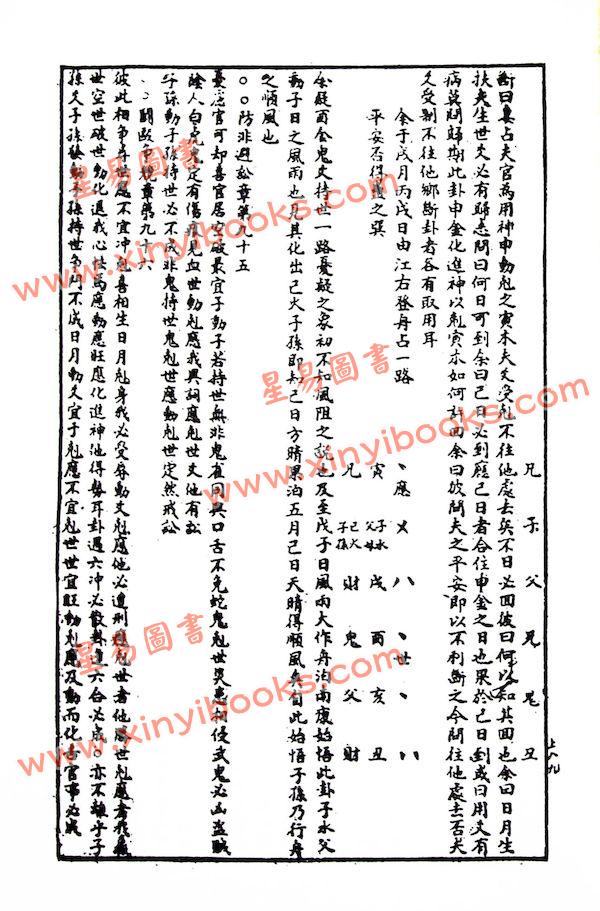 上八九
兄 子 父 兄 鬼 丑
斷曰妻占夫官為用神申動剋之寅木夫爻受剋不往他處去矣不日必回彼曰何以知其回也余曰日月生
扶夫生世爻必有歸志問曰何日可到余曰巳日必到應巳日者合住申金之日也果於巳日到或曰用爻有
病莫問歸期此卦申金化進神以剋寅木如何許回余曰彼問夫之平安即以不利斷之今問往他處去否夫
爻受制不往他鄉斷卦者各有取用耳
余于戌月丙戌日由江右登舟占一路
平安否得 之巽
、應 乂 八 、世 、 八
子水 父母
巳火 子孫
兄 寅 財 戌 鬼 酉 父 亥 財 丑
余疑酉金鬼爻持世一路憂疑之象初不知風阻之說也及至戊子日風雨大作舟泊南康始悟此卦子水父
動子日之風雨也見其化出巳火子孫即知巳日方晴果泊五月己日天晴得順風 自此始悟子孫乃行舟
之順風也
○○防非避訟章第九十五
憂 官可却喜官居空破最宜子動子若持世無非鬼雀同興口舌不免蛇鬼剋世災患相侵武鬼必 盜賊
陰人白虎 定有傷 見血世動剋應我興詞應剋世爻他有訟
子孫動子孫持世必不成非鬼持世鬼剋世應動剋世定然成訟
、、鬭毆爭競章第九十六
彼此相爭 世應不宜沖 喜相生日月剋身我必受辱動爻剋應他必遭刑應剋世者他勝世剋應者我
世空世破世動化退我心 應動應旺應化進神他得勢耳卦遇六沖必散卦逢六合必成○亦不離乎子
孫爻子孫發動子孫持世爭鬥不成日月動爻宜于剋應不宜剋世世宜旺動剋應 及動而化 官事必成
星易圖書
www.xinyibooks.com
星易圖書
www.xinyibooks.com
星易圖書
www.xinyibooks.com